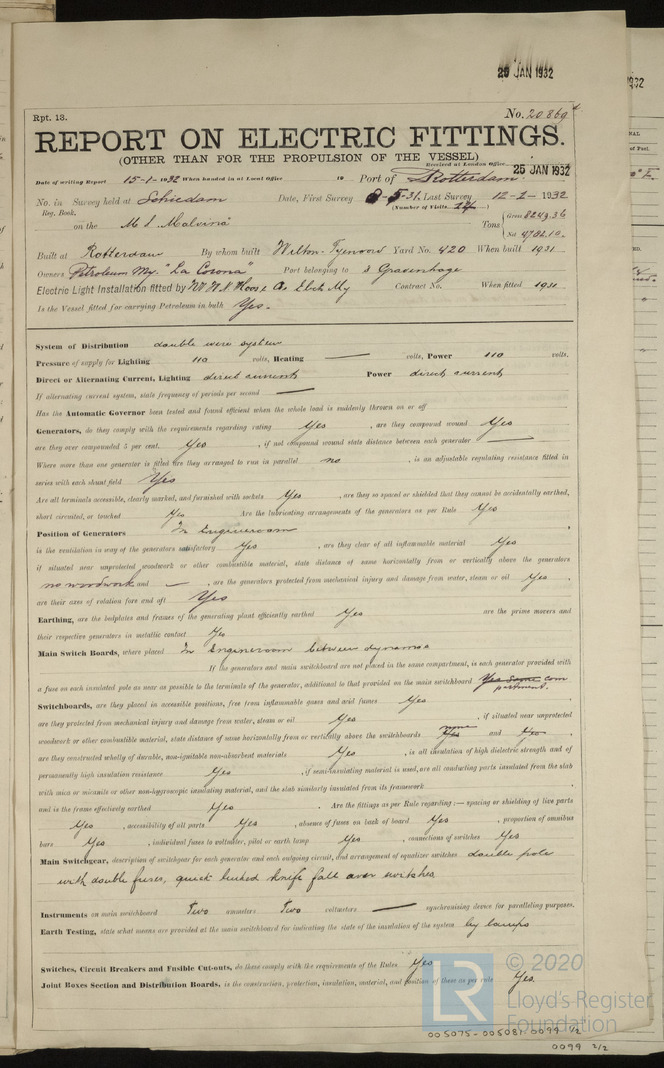 29 JAN 1932
Rpt. 13.
No. 20869
REPORT ON ELECTRIC FITTINGS.
(OTHER THAN FOR THE PROPULSION OF THE VESSEL)
Received at London Office 25 JAN 1932
Date of writing Report 15-1-1932 When handed in at Local Office 19 Port of Rotterdam
No. in Survey held at Schiedam Date, First Survey 8-5-31 Last Survey 12-1-1932
Reg. Book. (Number of Visits
on the M.S. Malvina Tons Gross 8249.36
Net
Built at Rotterdam By whom built Wilton-Fyenoord Yard No. 420 When built 1931
Owners Petroleum My. "La Corona" Port belonging to s Gravenhage
Electric Light Installation fitted by Contract No. When fitted 1931
Is the Vessel fitted for carrying Petroleum in bulk Yes.
System of Distribution double wire system
Pressure of supply for Lighting 110 volts, Heating — volts, Power 110 volts.
Direct or Alternating Current, Lighting direct current Power direct current
If alternating current system, state frequency of periods per second —
Has the Automatic Governor been tested and found efficient when the whole load is suddenly thrown on or off
Generators, do they comply with the requirements regarding rating Yes, are they compound wound Yes
are they over compounded 5 per cent. Yes, if not compound wound state distance between each generator —
Where more than one generator is fitted are they arranged to run in parallel no, is an adjustable regulating resistance fitted in
series with each shunt field Yes
Are all terminals accessible, clearly marked, and furnished with sockets Yes, are they so spaced or shielded that they cannot be accidentally earthed,
short circuited, or touched Yes Are the lubricating arrangements of the generators as per Rule Yes
Position of Generators In Engineroom
is the ventilation in way of the generators satisfactory Yes, are they clear of all inflammable material Yes
if situated near unprotected woodwork or other combustible material, state distance of same horizontally from or vertically above the generators
no woodwork and —, are the generators protected from mechanical injury and damage from water, steam or oil Yes.
are their axes of rotation fore and aft Yes
Earthing, are the bedplates and frames of the generating plant efficiently earthed Yes are the prime movers and
their respective generators in metallic contact Yes
Main Switch Boards, where placed In Engineroom between dynamos
If the generators and main switchboard are not placed in the same compartment, is each generator provided with
a fuse on each insulated pole as near as possible to the terminals of the generator, additional to that provided on the main switchboard Yes same com
partment.
Switchboards, are they placed in accessible positions, free from inflammable gases and acid fumes Yes
are they protected from mechanical injury and damage from water, steam or oil Yes, if situated near unprotected
woodwork or other combustible material, state distance of same horizontally from or vertically above the switchboards none Yes and Yes,
are they constructed wholly of durable, non-ignitable non-absorbent materials Yes, is all insulation of high dielectric strength and of
permanently high insulation resistance Yes, if semi-insulating material is used, are all conducting parts insulated from the slab
with mica or micanite or other non-hygroscopic insulating material, and the slab similarly insulated from its framework
and is the frame effectively earthed Yes. Are the fittings as per Rule regarding:— spacing or shielding of live parts
Yes, accessibility of all parts Yes, absence of fuses on back of board Yes, proportion of omnibus
bars Yes, individual fuses to voltmeter, pilot or earth lamp Yes, connections of switches Yes
Main Switchgear, description of switchgear for each generator and each outgoing circuit, and arrangement of equalizer switches double pole
with double fuses, quick knife fall over switches
Instruments on main switchboard Two ammeters Two voltmeters — synchronising device for paralleling purposes.
Earth Testing, state what means are provided at the main switchboard for indicating the state of the insulation of the system by lamps
Switches, Circuit Breakers and Fusible Cut-outs, do these comply with the requirements of the Rules Yes
Joint Boxes Section and Distribution Boards, is the construction, protection, insulation, material, and position of these as per rule Yes.
LR
© 2020
Lloyd's Register
Foundation
005075-005081-0099 1/2
0099 2/2